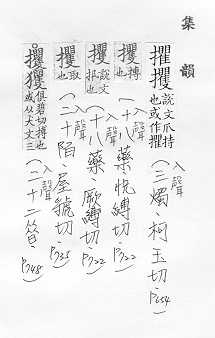 集韻
擢攫說文爪持也或作擢(入聲三燭、柯玉切、P654)
攫搏也(入聲十八藥、怳縛切、P722)
攫說文扟也(入聲十八藥、厥縛切、P722)
攫取也(入聲二十陌、屋虢切、P735)
攫玃俱碧切搏也或从犬文三(入聲二十二昔、P748)